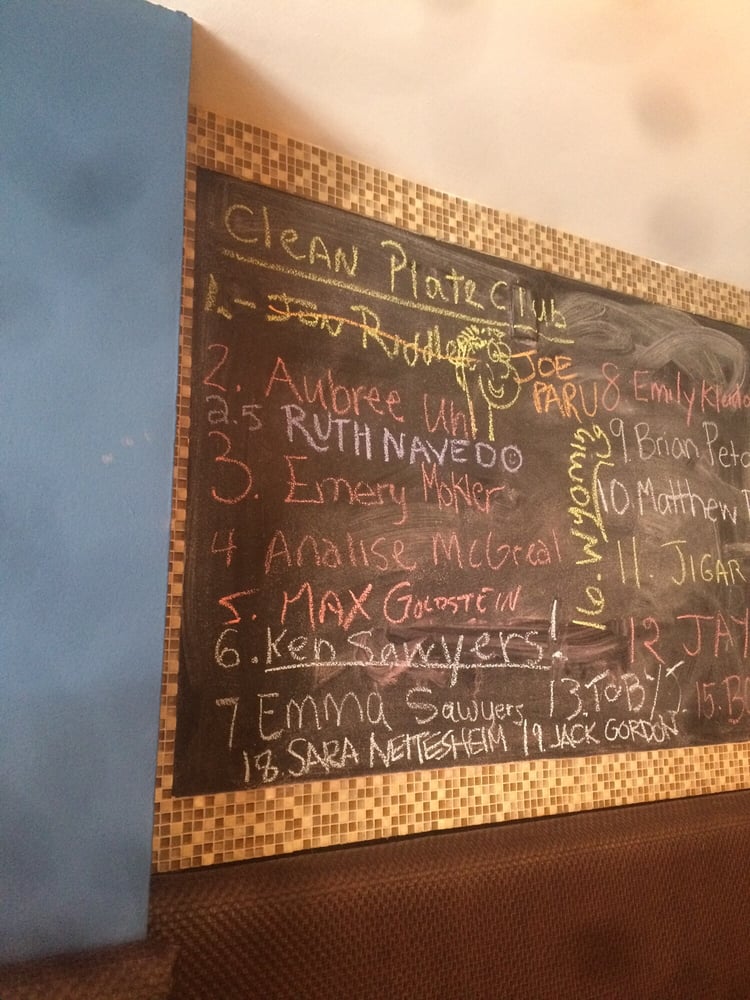 Clean Plate Club
1.- Jon Riddle
JOE
PARU
2. Aubree Uhl
2.5 RUTH NAVEDO
3. Emery Mokler
4 Analise McGreal
5. MAX GOLDSTEIN
6. Ken Sawyers!
7 Emma Sawyers
18. SARA NETTESHEIM
19. JACK GORDON
8 Emily
9. Brian
10. Matthew
11. JIGAR
12 JAY
13. TOBY J.
15.
16.